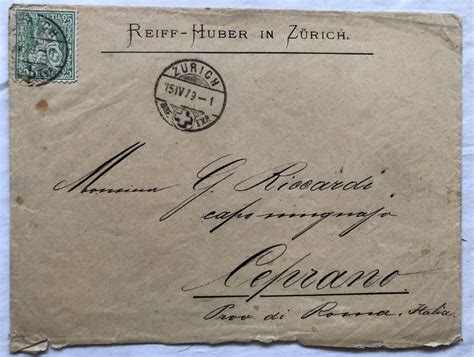 REIFF-HUBER IN ZÜRICH.
25
ZÜRICH
15 IV 79 - 1
BRF. EXP.
Monsieur G. Riccardi
capo mugnajo
Ceprano.
Prov di Roma. Italia